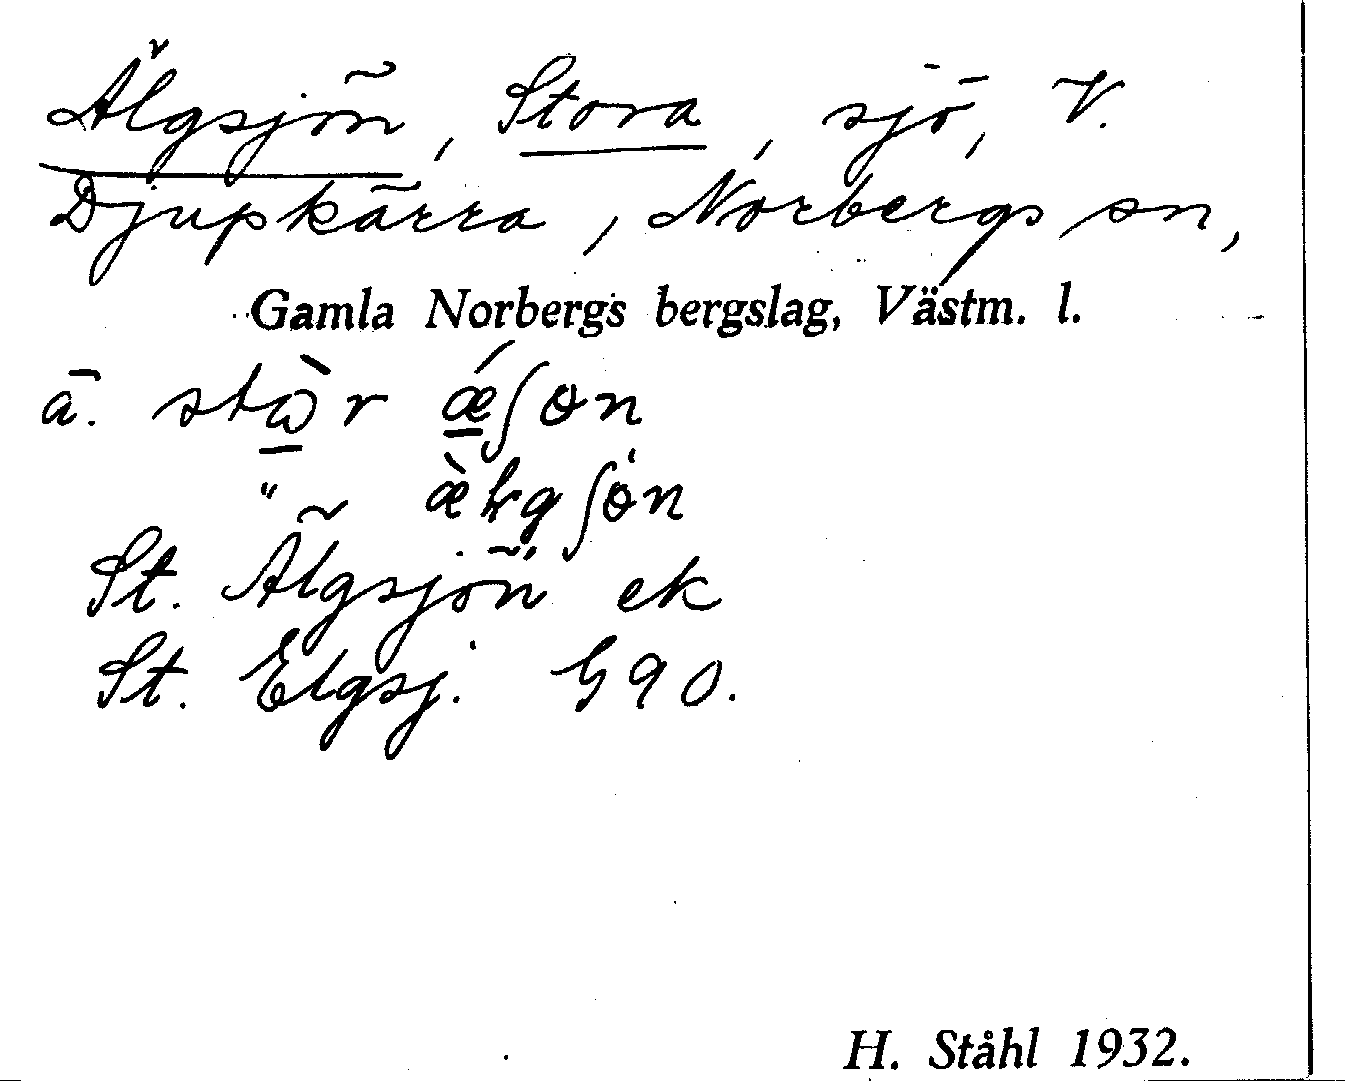 Älgsjön, Stora, sjö, V.
Djupkärra, Norbergs sn,
Gamla Norbergs bergslag, Västm. l.
ä. stὼr ǽʃɵn
" æ̀lrgʃɵn
St. Älgsjön ek
St. Elgsj. G90.
H. Ståhl 1932.